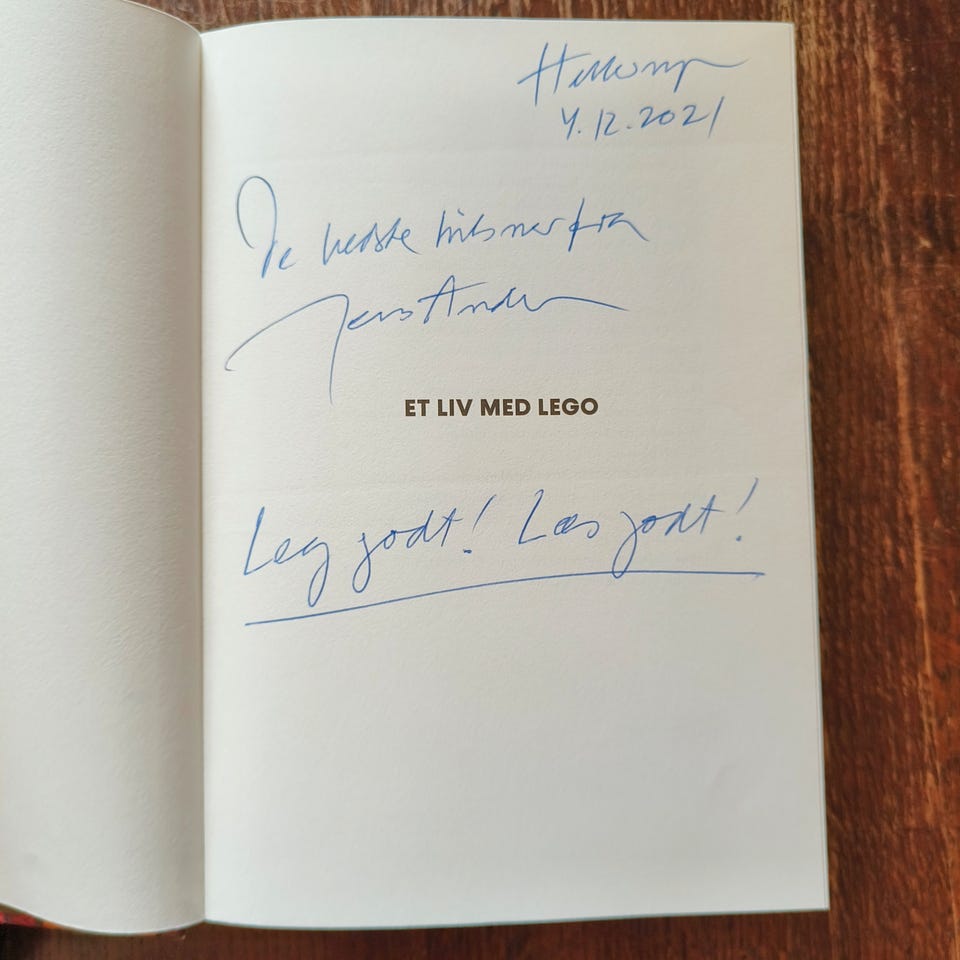 Hellerup
4.12.2021
De bedste hilsner fra
Jens Andersen
ET LIV MED LEGO
Leg godt! Læs godt!